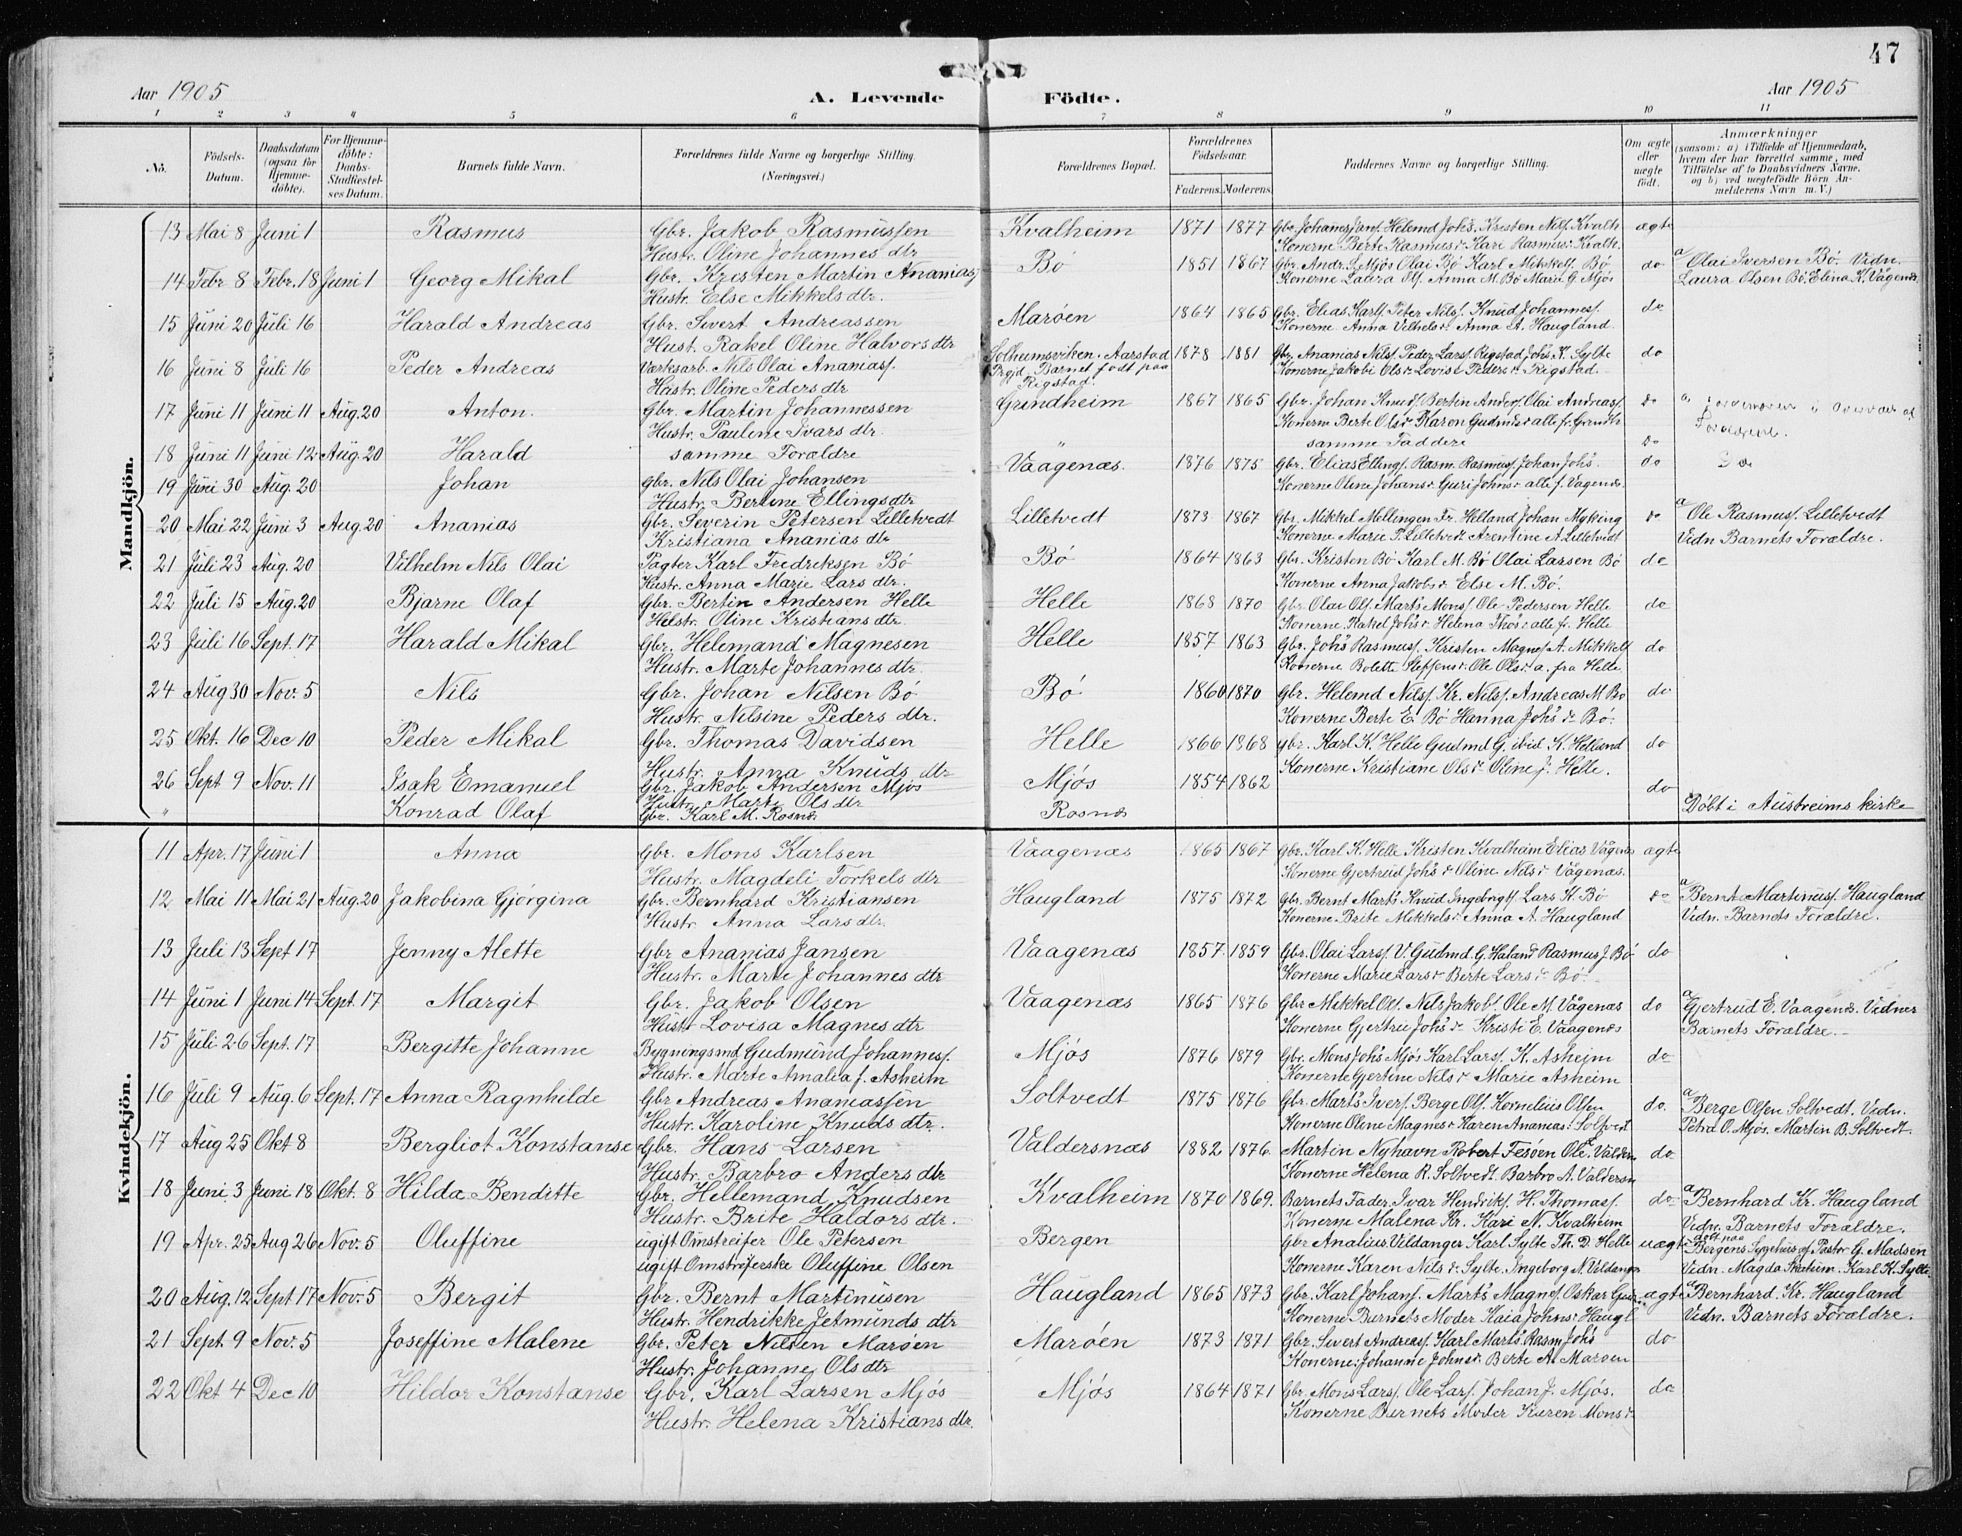 47
Aar 1905 A. Levende Födte. Aar 1905
1 2 3 4 5 6 7 8 9 10 11
No. Födsels-Datum. Daabsdatum (ogsaa for Hjemme-döbte). For Hjemme-döbte: Daabs-Stadfæstel-ses Datum. Barnets fulde Navn. Forældrenes fulde Navne og borgerlige Stilling. (Næringsvei.) Forældrenes Bopæl. Forældrenes Födselsaar. Faderens. Moderens. Faddernes Navne og borgerlige Stilling. Om ægte eller uægte födt. Anmærkninger (saasom: a) i Tilfælde af Hjemmedaab, hvem der har forrettet samme, med Tilföielse af to Daabsvidners Navne. og b) ved uægtefödte Börn An-melderens Navn m. V.)
Mandkjön.
13 Mai 8 Juni 1 Rasmus Gbr. Jakob Rasmussen Kvalheim 1871 1877 Gbr. Johannes Jans. Helemd Johs. Kristen Nils. Kvalh. ægte
Hustr. Oline Johannes dtr Konerne Berte Rasmusdr Kari Rasmusdr Kvalh.
14 Febr 8 Febr. 18 Juni 1 Georg Mikal Gbr. Kristen Martin Ananias. Bö 1851 1867 Gbr. Andr. S. Mjös Olai Bö Karl Mikkels. Bö do a Olai Iversen Bö. Vidn.
Hustr. Else Mikkels dtr. Konerne Laura Ols. Anna M. Bö Marie G. Mjös Laura Olsen Bö. Elina K. Vågenes
15 Juni 20 Juli 16 Harald Andreas Gbr. Sivert Andreassen Maröen 1864 1865 Gbr. Elias Karls. Peter Nils. Knud Johannes. do
Hust. Rakel Oline Halvors dtr Konerne Anna Vilhelsdr Anna A. Haugland.
16 Juni 8 Juli 16 Peder Andreas Værksarb. Nils Olai Ananias. Solheimsviken. Aarstad 1878 1881 Gbr. Ananias Nils. Peder Lars. Rigstad Johs. K. Sylte do
Hustr. Oline Peders dtr Prgjd. Barnet födt paa Rigstad. Konerne Jakobi Olsdr Lovise Pedersdr Rigstad.
17 Juni 11 Juni 11 Aug. 20 Anton. Gbr. Martin Johannessen Grindheim 1867 1865 Gbr. Johan Knuds. Bertin Anders. Olai Andreas. do
Hustr. Pauline Ivars dtr. Konerne Berte Olsdr Karen Gudmdr alle fr. Grindh.
18 Juni 11 Juni 12 Aug. 20 Harald samme Forældre " samme Faddere do Do
19 Juni 30 Aug. 20 Johan gbr. Nils Olai Johansen Vaagenæs. 1876 1875 Gbr. Elias Ellings. Rasm. Rasmus. Johan Johs. do
Hustr. Bertine Ellings dtr Konerne Oline Johansdr Guri Johnsdr alle f. Vagenes.
20 Mai 22 Juni 3 Aug. 20 Ananias Gbr. Severin Petersen Lilletvedt Lilletvedt 1873 1867 Gbr. Mikkel Mellingen Fr. Helland Johan Myking do a Ole Rasmus. Lilletvedt
Kristiana Ananias dtr Konerne Marie P. Lilletvedt Arentine A. Lilletvedt Vidn Barnets Forældre.
21 Juli 23 Aug. 20 Vilhelm Nils Olai Pagter Karl Fredriksen Bö Bö 1864 1863 Gbr. Kristen Bö Karl M. Bö Olai Larsen Bö do
Hustr. Anna Marie Lars dtr. Konerne Anna Jakobsdr Else M. Bö.
22 Juli 15 Aug. 20 Bjarne Olaf Gbr. Bertin Andersen Helle Helle 1868 1870 Gbr Olai Ols. Marts Mons. Ole Pedersen Helle do
Hustr. Oline Kristians dtr. Konerne Rakel Johsdr Helena Thosdr alle fr. Helle
23 Juli 16 Sept. 17 Harald Mikal Gbr. Helemand Magnesen Helle 1857 1863 Gbr. Johs Rasmus. Kristen Magnes. A. Mikkels do
Hustr. Marte Johannes dtr. Konerne Bolette Steffensdr Ole Olsdr a. fra Helle.
24 Aug 30 Nov. 5 Nils Gbr. Johan Nilsen Bö Bö 1860 1870 Gbr. Helemd Nils. Kr. Nils. Andreas M. Bö do
Hustr. Nilsine Peders dtr. Konerne Berte E. Bö Hanna Johsdr Bö.
25 Okt. 16 Dec 10 Peder Mikal Gbr. Thomas Davidsen Helle 1866 1868 gbr. Karl K. Helle Gudmd G. ibid K. Helland do
Hustr. Anna Knuds dtr Konerne Kristiane Olsdr Oline J. Helle.
26 Sept 9 Nov. 11 Isak Emanuel Gbr. Jakob Andersen Mjös Mjös 1854 1862 do
Hustr. Marte Ols dtr
" Konrad Olaf Gbr. Karl M. Rosnes Rosnes Döbt i Austreims kirke
Kvindekjön.
11 Apr. 17 Juni 1 Anna Gbr. Mons Karlsen Vaagenæs 1865 1867 Gbr. Karl K. Helle Kristen Kvalheim Elias Vågenes ægte
Hustr. Magdeli Torkels dtr Konerne Gjertrud Johsdr Oline Nilsdr Vågenæs.
12 Mai 11 Mai 21 Aug. 20 Jakobina Gjörgina gbr. Bernhard Kristiansen Haugland 1875 1872 Gbr. Bernt Marts Knud Ingebrigts. Lars K. Bö do a Bernt Martinus. Haugland
Hustr. Anna Lars dtr. Konerne Brite Mikkelsdr Anna A. Haugland Vidn. Barnets Forældre.
13 Juli 13 Sept 17 Jenny Alette Gbr Ananias Jansen Vaagenæs 1857 1859 Gbr. Olai Lars. V. Gudmd G. Haland Rasmus J. Bö do
Hustr. Marte Johannes dtr Konerne Marie Larsdr Birte Larsdr Bö.
14 Juni 1 Juni 14 Sept. 17 Margit Gbr. Jakob Olsen Vaagenæs 1865 1876 Gbr Mikkel Ols. Nils Jakobs. Ole M. Vågenæs do a Gjertrud E. Vaagenes. Vidner
Hustr Lovisa Magnes dtr Konerne Gjertrud Johsdr Kristi E. Vaagenes Barnets Forældre.
15 Juli 26 Sept. 17 Bergitte Johanne Bygningsmd Gudmund Johannes. Mjös 1876 1879 Gbr. Mons Johs Mjös Karl Lars. K. Asheim do
Hustr. Marte Amalia f. Asheim Konerne Gjertine Nilsdr Marie Asheim
16 Juli 9 Aug. 6 Sept. 17 Anna Ragnhilde Gbr Andreas Ananiassen Soltvedt 1875 1876 Gbr. Marts Ivers. Berge Ols. Kornelius Olsen do. a Berge Olsen Soltvedt. Vidn.
Hustr. Karoline Knuds dtr. Konerne Oline Magnesdr Karen Ananias. Soltvedt Petra O. Mjös. Martin B. Soltvedt.
17 Aug 25 Okt 8 Bergliot Konstanse Gbr. Hans Larsen Valdersnæs 1882 1876. Martin Nyhavn Robert Fesöen Ole Valdern. do
Hustr. Barbro Anders dtr Konerne Helena R. Soltvedt Barbro A. Valdersn
18 Juni 3 Juni 18 Okt. 8 Hilda Benditte Gbr. Hellemand Knudsen Kvalheim 1870 1869. Barnets Fader. Ivar Hendriks. H. Thomas. do a Bernhard Kr. Haugland
Hustr. Brite Haldors dtr. Konerne Malena Kr. Kari N. Kvalheim Vidn. Barnets Forældre.
19 Apr. 25 Aug 26 Nov. 5 Oluffine ugift Omstreifer Ole Petersen Bergen Gbr Analius Vildanger Karl Sylte Th. D. Helle uægte Döbt paa Bergens Sygehus af Pastor G. Madsen
ugift Omströferske Oluffine Olsen Konerne Karen Nilsdr Sylte. Ingeborg N. Vildanger Vidn. Magda Skotum. Karl K. Sylte.
20 Aug. 12 Sept 17 Nov. 5 Bergit Gbr. Bernt Martinusen Haugland 1865 1873 Gbr. Karl Johans. Marts Magnes. Oskar ægte a Bernhard Kr. Haugland
Hustr. Hendrikke Jetmunds dtr Konerne Barnets Moder Kaia Johnsdr Haugl Vidn. Barnets Forældre.
21 Sept. 9 Nov. 5 Joseffine Malene Gbr. Peter Nilsen Maröen Maröen 1873 1871 Gbr. Sivert Andreas. Karl Marts. Rasm Johs do
Hustr. Johanne Ols dtr Konerne: Johanne Johnsdr Berte A. Maröen
22 Okt 4 Dec 10 Hildor Konstanse Gbr. Karl Larsen Mjös Mjös 1864 1871 Gbr. Mons Lars. Ole Lars. Johan J. Mjös. do
Hustr. Helena Kristians dtr. Konerne Barnets Moder Karen Monsdr